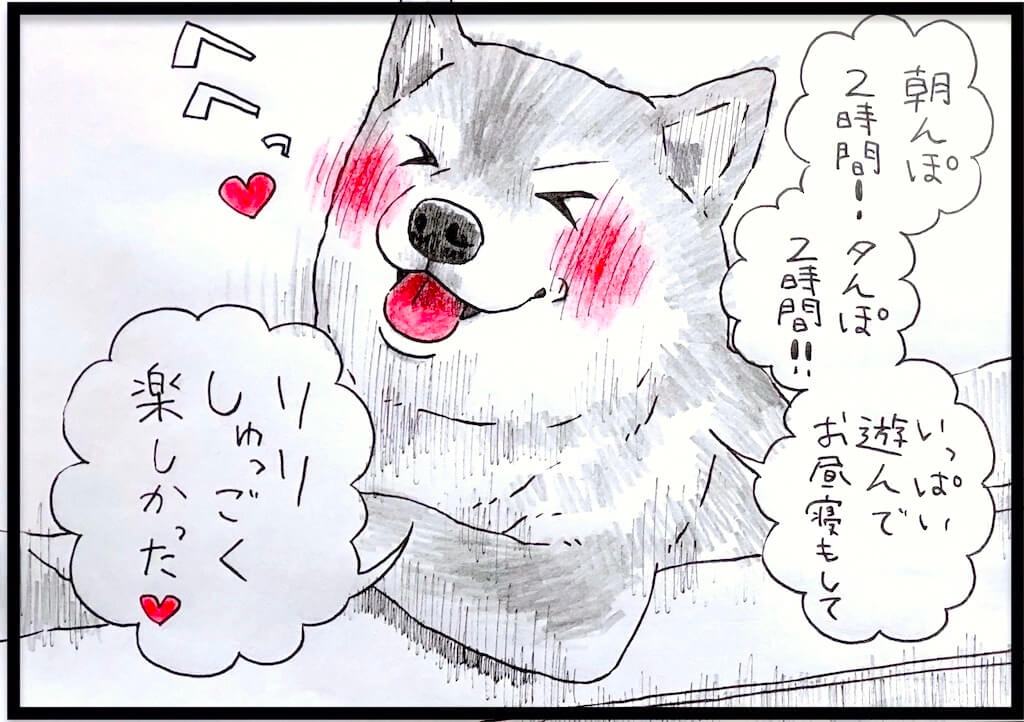 朝んぽ
2時間!
夕んぽ
2時間!!
いっぱい
遊んで
お昼寝もして
リリ
しゅっごく
楽しかった
フフっ